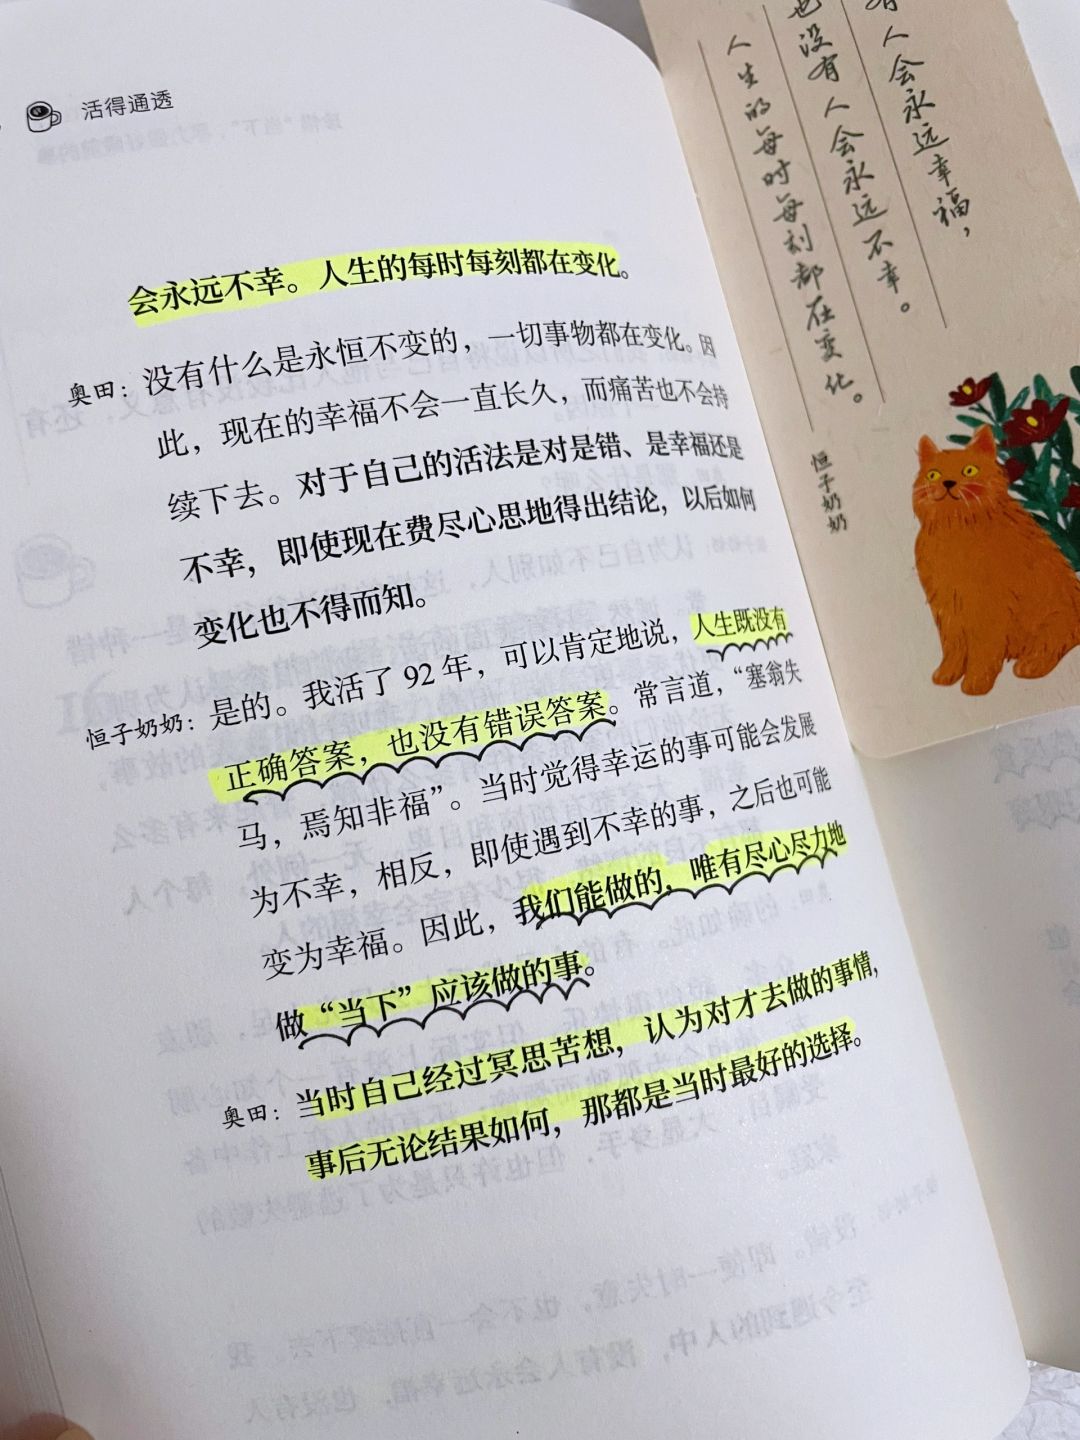 活得通透
会永远不幸。人生的每时每刻都在变化。
奥田：没有什么是永恒不变的，一切事物都在变化。因
此，现在的幸福不会一直长久，而痛苦也不会持
续下去。对于自己的活法是对是错、是幸福还是
不幸，即使现在费尽心思地得出结论，以后如何
变化也不得而知。
恒子奶奶：是的。我活了 92 年，可以肯定地说，人生既没有
正确答案，也没有错误答案。常言道，“塞翁失
马，焉知非福”。当时觉得幸运的事可能会发展
为不幸，相反，即使遇到不幸的事，之后也可能
变为幸福。因此，我们能做的，唯有尽心尽力地
做“当下”应该做的事。
奥田：当时自己经过冥思苦想，认为对才去做的事情，
事后无论结果如何，那都是当时最好的选择。
有人会永远幸福，
也没有人会永远不幸。
人生的每时每刻都在变化。
恒子奶奶